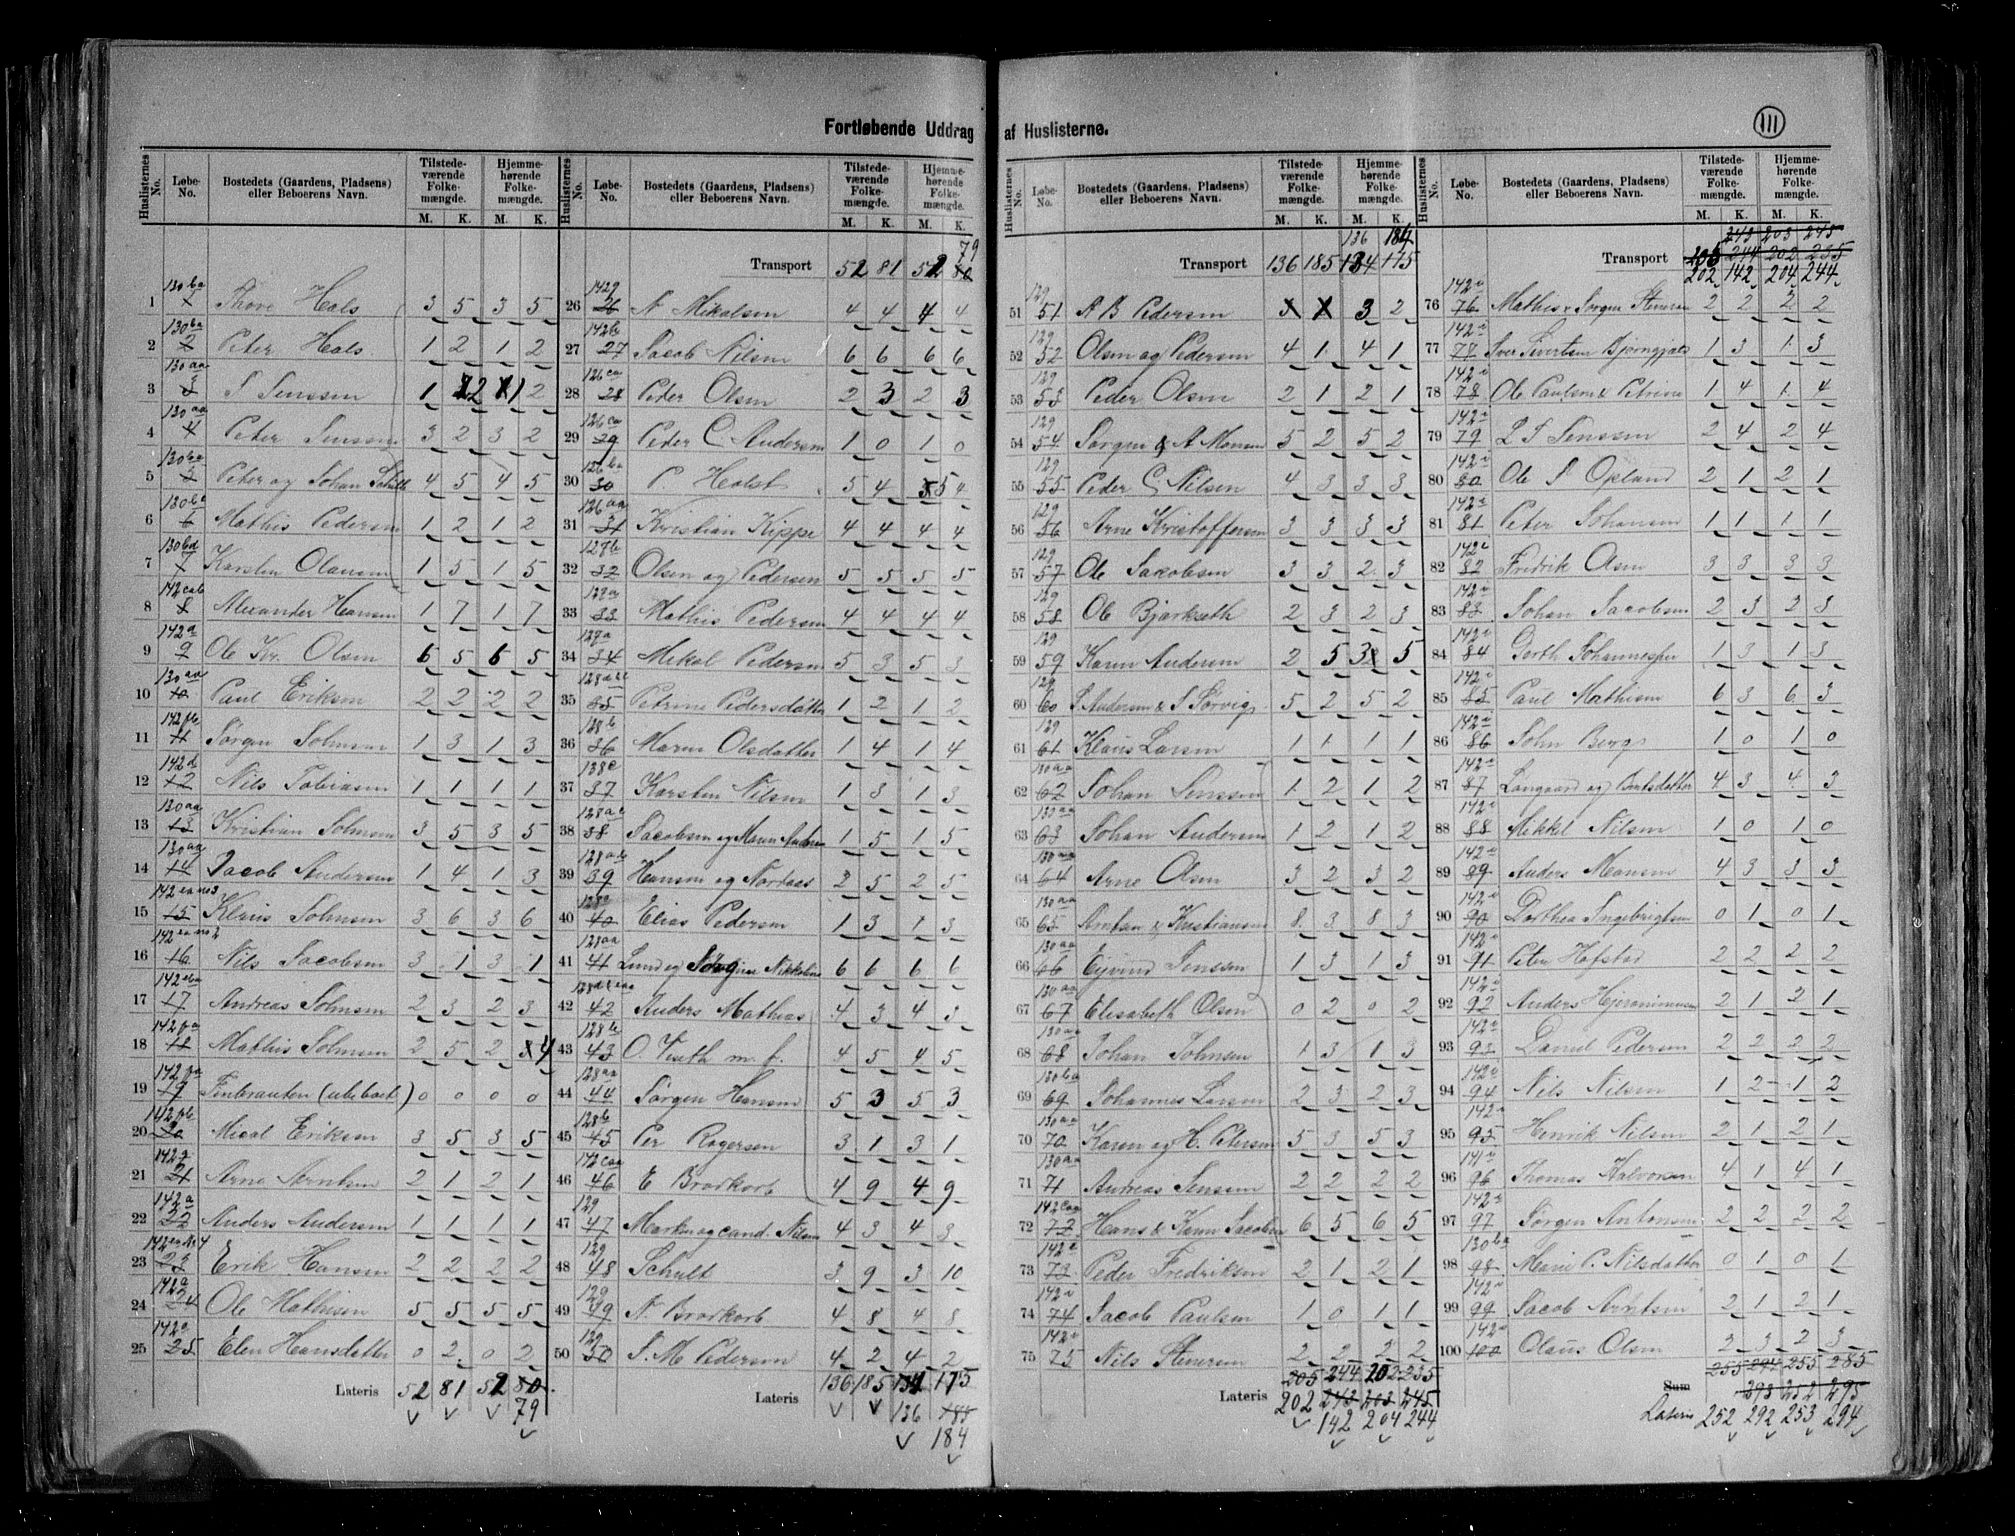 Fortløbende Uddrag af Huslisterne.
111
Huslisternes No. Løbe-No. Bostedets (Gaardens, Pladsens) eller Beboerens Navn. Tilstedeværende Folkemængde. M. K. Hjemmehørende Folkemængde. M. K.
1 130 ba Thore Hals 3 5 3 5
2 130 ba Peter Hals 1 2 1 2
3 130 aa S Jenssen 1 2 1 2
4 130 aa Peter Jenssen 3 2 3 2
5 130 ba Peter og Johan Schille 4 5 4 5
6 130 ba Mathis Pedersen 1 2 1 2
7 130 bd Karsten Olausen 1 5 1 5
8 142 cab Alexander Hansen 1 7 1 7
9 142 a Ole Kr. Olsen 6 5 6 5
10 130 aa Paul Eriksen 2 2 2 2
11 142 fb Jørgen Johnsen 1 3 1 3
12 142 d Nils Tobiasen 1 1 1 1
13 130 aa Kristian Johnsen 3 5 3 5
14 130 aa Jacob Andersen 1 4 1 3
15 142 Klaus Johnsen 3 6 3 6
16 142 Nils Jacobsen 3 1 3 1
17 142 Andreas Johnsen 2 3 2 3
18 142 fa Mathis Johnsen 2 5 2 4
19 142 fa Finbrauten (ubeboet) 0 0 0 0
20 142 fb Mical Eriksen 3 5 3 5
21 142 g Arne Arntsen 2 1 2 1
22 142 a Anders Andersen 1 1 1 1
23 142 Erik Hansen 2 2 2 2
24 142 a Ole Mathisen 5 5 5 5
25 142 a Elen Hansdatter 0 2 0 2
Lateris 52 81 52 80
79
Transport 52 81 52 80 79
26 142 g N Mikalsen 4 4 4 4
27 142 b Jacob Nilsen 6 6 6 6
28 126 ca Peder Olsen 2 3 2 3
29 126 ca Peder C Andersen 1 0 1 0
30 126 ba P Holst 5 4 5 4
31 126 aa Kristian Kippe 4 4 4 4
32 128 b Olsen og Pedersen 5 5 5 5
33 Mathis Pedersen 4 4 4 4
34 127 a Mikal Pedersen 5 3 5 3
35 Petrine Pedersdatter 1 2 1 2
36 128 b Maren Olsdatter 1 4 1 4
37 138 c Karsten Nilsen 1 3 1 3
38 Jacobsen og Maren Andersen 1 5 1 5
39 128 ab Hansen og Nordaas 2 5 2 5
40 128 Elias Pedersen 1 3 1 3
41 128 aa Lund og Jørgine Nikkoline 6 6 6 6
42 Anders Mathias 4 3 4 3
43 128 b O. Vinth m. f. 4 5 4 5
44 128 aa Jørgen Hansen 5 3 5 3
45 128 b Per Rogersen 3 1 3 1
46 142 caa E Brodkorb 4 9 4 9
47 129 Markus og cand. Nilsen 4 3 4 3
48 129 Schult 3 9 3 10
49 129 N. Brodkorb 4 8 4 8
50 129 J. M Pedersen 4 2 4 2
Lateris 136 185 134 175
136 185
184
Transport 136 185 134 175
136 184
51 129 A B Pedersen 3 2
52 129 Olsen og Pedersen 4 1 4 1
53 129 Peder Olsen 2 1 2 1
54 129 Jørgen & A Monsen 5 2 5 2
55 129 Peder C Nilsen 4 3 3 3
56 129 Arne Kristoffersen 3 3 3 3
57 129 Ole Jacobsen 3 3 2 3
58 129 Ole Bjørkseth 2 3 2 3
59 129 Karen Andersen 2 5 3 5
60 129 J Andersen & J Sørvig 5 2 5 2
61 129 Klaus Larsen 1 1 1 1
62 130 aa Johan Jenssen 1 2 1 2
63 130 aa Johan Andersen 1 2 1 2
64 130 aa Arne Olsen 3 2 3 2
65 130 aa Arntsen & Kristiansen 8 3 8 3
66 130 aa Ejvind Jenssen 1 3 1 3
67 130 aa Elisabeth Olsen 0 2 0 2
68 130 aa Johan Johnsen 1 3 1 3
69 130 ba Johannes Larsen 2 3 2 3
70 130 aa Karen og H. Petersen 5 3 5 3
71 130 aa Andreas Jenssen 2 2 2 2
72 142 caa Hans & Karen Jacobsen 6 5 6 5
73 142 a Peder Fredriksen 2 1 2 1
74 142 a Jacob Paulsen 1 0 1 1
75 142 a Nils Stenersen 2 2 2 2
Lateris 205 244 202 235
202 243 203 245
142 204 244
Transport 205 244 202 235
243 203 245
202 142 204 244
76 142 a Mathis & Jørgen Stenersen 2 2 2 2
77 142 a Iver Sivertsen Bjørngjale 1 3 1 3
78 142 a Ole Paulsen & Petrine 1 4 1 4
79 142 a L J Jenssen 2 4 2 4
80 142 a Ole J Opland 2 1 2 1
81 142 a Peter Johansen 1 1 1 1
82 142 a Fredrik Olsen 3 3 3 3
83 142 a Johan Jacobsen 2 3 2 3
84 142 a 1 3 1 3
85 142 a Paul Mathisen 6 3 6 3
86 142 a John Berg 1 0 1 0
87 142 a Langaard og Bertsdatter 4 3 4 3
88 142 a Mikkel Nilsen 1 0 1 0
89 142 a Anders Monsen 4 3 3 3
90 142 a Dorthea Ingebrigtsen 0 1 0 1
91 142 a Peter Hofstad 2 2 2 2
92 142 a Anders Hjeronimussen 2 1 2 1
93 142 a Daniel Pedersen 2 2 2 2
94 142 a Nils Nilsen 1 2 1 2
95 142 a Henrik Nilsen 2 1 2 1
96 141 a Thomas Halvorsen 4 1 4 1
97 142 a Jørgen Antonsen 2 2 2 2
98 130 ba Marie P. Nilsdatter 0 1 0 1
99 142 a Jacob Arntsen 2 1 2 1
100 142 a Olaus Olsen 2 3 2 3
Sum 255 294 255 285
393 252 295
Lateris 252 292 253 294